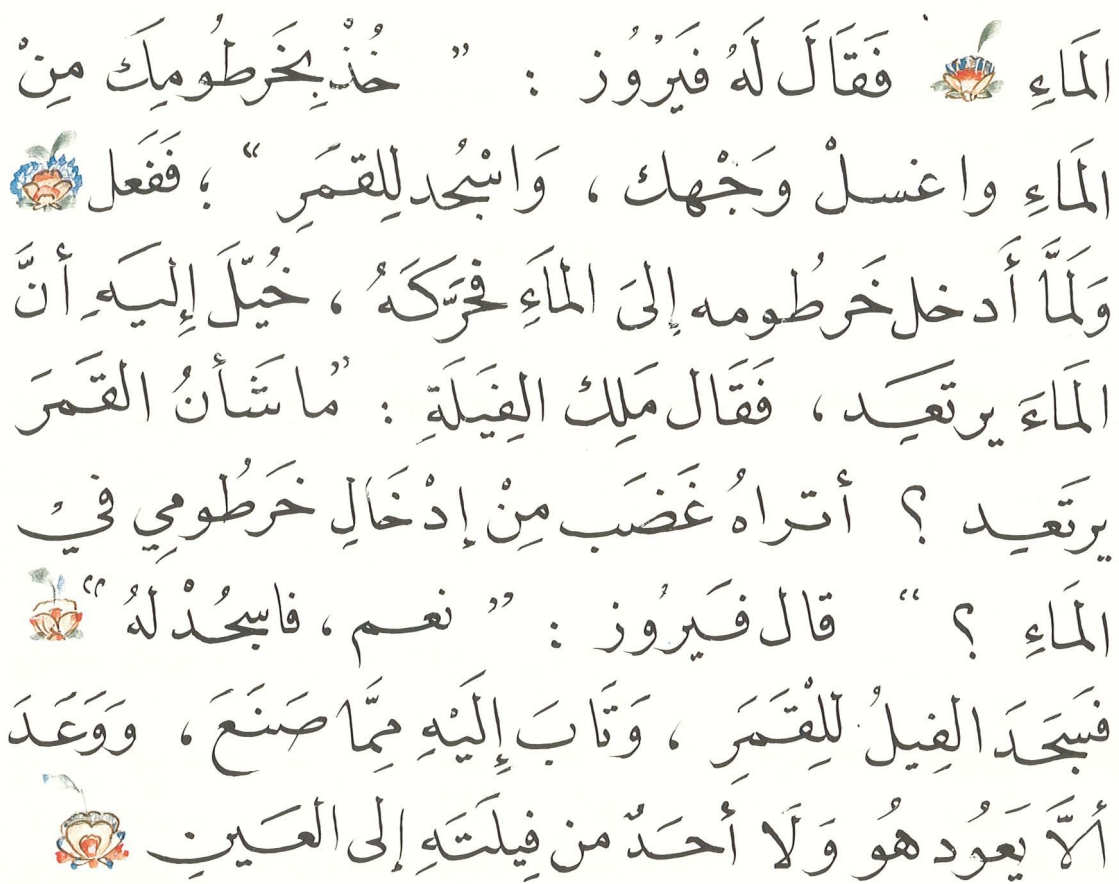 المَاءِ فَقَالَ لَهُ فَيْرُوز : ” خُذْ بِخَرطُومِكَ مِنْ
المَاءِ واغسلْ وَجْهك ، وَاسْجُد لِلقمَرِ “ ؛ فَفَعل
وَلَمَّا أَدخل خَرطُومه إِلىَ المَاءِ فحَرَّكَهُ ، خُيِّلَ إِليَهِ أنَّ
المَاءَ يرتعَِد ، فَقَال مَلِكُ الفِيَلَةِ : ”ما شَأنُ القَمَرَ
يرتَعِد ؟ أتراهُ غَضَب مِنْ إِدْخَالِ خَرطُومِي فيْ
المَاءِ ؟ “ قال فَيرُوز : ” نعم ، فاسجُدْ لهُ “
فَسَجَدَ الفِيلُ لِلْقَمَرِ ، وَتَابَ إِلَيْهِ مِمَّا صَنَعَ ، وَوَعَدَ
أَلاَّ يَعُود هُو وَلَا أحَدٌ من فِيلَتَهِ إلى العَينِ